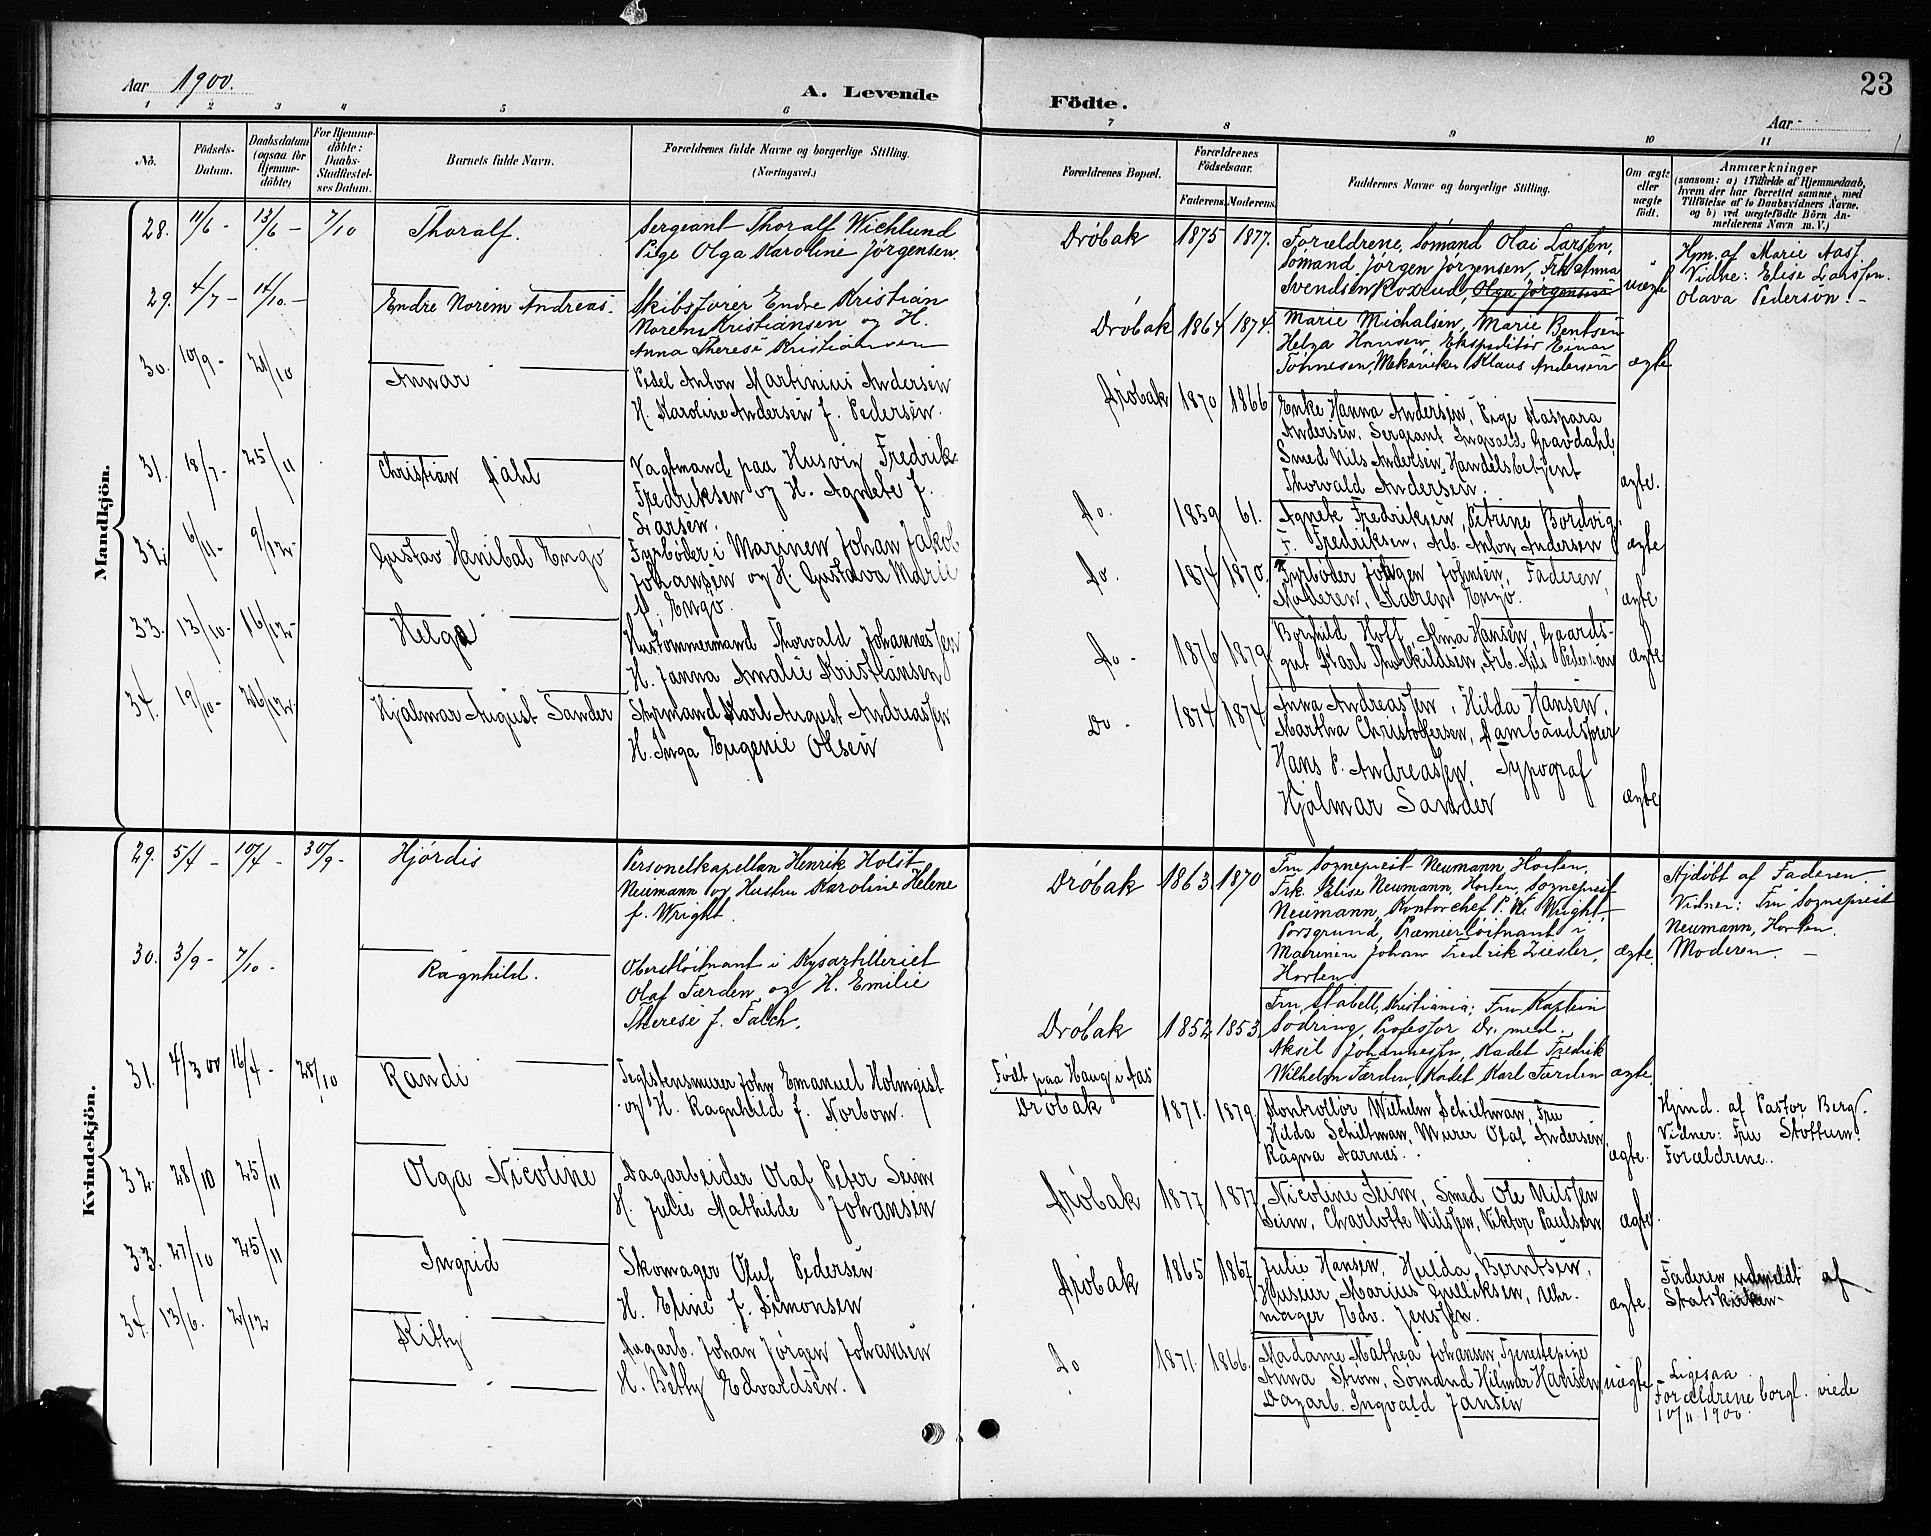 23
Aar 1900.
A. Levende Födte.
Aar
1 2 3 4 5 6 7 8 9 10 11
No.
Födsels-Datum.
Daabsdatum (ogsaa for Hjemme-döbte)
For Hjemme-döbte: Daabs-Stadfæstel-ses Datum.
Barnets fulde Navn.
Forældrenes fulde Navne og borgerlige Stilling. (Næringsvei.)
Forældrenes Bopæl.
Forældrenes Födselsaar.
Faderens. Moderens.
Faddernes Navne og borgerlige Stilling.
Om ægte eller uægte födt.
Anmærkninger
(saasom: a) i Tilfælde af Hjemmedaab,
hvem der har forrettet samme, med
Tilföielse af to Daabsvidners Navne,
og b) ved uægtefödte Börn An-
melderens Navn m. V.)
Mandkjön.
28. 11/6 - 13/6 - 7/10 Thoralf.
Sergeant Thoralf Wichlund
Pige Olga Karoline Jørgensen.
Drøbak 1875 1877.
Forældrene, Sømand Olai Larsen,
Sømand Jørgen Jørgensen, Frk Anna
Svendsen Koxrud, Olga Jørgensen
uægte
Hjm. af Marie Aas
Vidne: Elise Larssen.
Olava Pedersen! -
29. 4/7 - 14/10 - Endre Norem Andreas.
Skibsfører Endre Kristian
Norem Kristiansen og H.
Anna Therese Kristiansen
Drøbak 1864 1874.
Marie Michalsen, Marie Bentsen
Helga Hansen, Ekspeditør Einar
Tønnesen, Mekaniker Klaus Andersen
ægte
30. 10/9 - 21/10 Annar
Pedel Anton Martinius Andersen
H. Karoline Andersen f. Pedersen.
Drøbak 1870 1866
Enke Hanna Andersen, Pige Kaspara
Andersen, Sergeant Ingvald Gravdahl,
Smed Nils Andersen, Handelsbetjent
Thorvald Andersen.
ægte.
31. 18/7 - 25/11 Christian Dahl
Vagtmand paa Husvig Fredrik
Fredriksen og H. Agnete f.
Larsen.
Do. 1859 61.
Agnete Fredriksen, Petrine Bordvig
F. Fredriksen, Arb. Anton Andersen
ægte
32. 6/11 - 9/12 - Gustav Hanibal Engø
Fyrbøder i Marinen Johan Jakob
Johansen og H. Gustava Marie
f. Engø.
Do. 1874 1870.
Fyrbøder Jørgen Johnsen, Faderen,
Moderen, Karen Engø.
ægte
33. 13/10 - 16/12 - Helge
Hustømmermand Thorvald Johannessen
H. Janna Amalie Kristiansen
Do - 1876 1879.
Borghild Hoff, Alma Hansen, Gaards-
gut Karl Thorkildsen, Arb. Nils Pedersen
ægte
34. 19/10 - 26/12 - Hjalmar August Sander
Styrmand Karl August Andreassen
H. Inga Eugenie Olsen
Do - 1874 1874
Anna Andreassen, Hilda Hansen,
Martha Christoffersen, Dambaadsfører
Hans P. Andreassen, Typograf
Hjalmar Sander
ægte
Kvindekjön.
29. 5/4 - 10/4 - 30/9 - Hjørdis
Personelkapellan Henrik Holst
Neumann og Hustru Karoline Helene
f. Wright.
Drøbak 1863. 1870
Fru Sogneprest Neumann, Horten,
Frk. Elise Neumann, Horten, Sogneprest
Neumann, Kontorchef P. Wright,
Porsgrund, Premierløitnant i
Marinen Johan Fredrik Ziesler,
Horten
ægte.
Hjdøbt af Faderen.
Vidner: Fru Sogneprest
Neumann, Horten.
Moderen. -
30. 3/9 - 7/10 - Ragnhild.
Oberstløitnant i Kysartilleriet
Olaf Færden og H. Emilie
Therese f. Falch.
Drøbak 1852 1853.
Fru Stabell, Kristiania; Fru Kaptein
Sødring, Professor Dr. med.
Aksel Johannessen, Kadet Fredrik
Wilhelm Færden, Kadet Karl Færden
ægte.
31. 4/3 00 16/4 - 28/10 Randi
Teglstensmurer John Emanuel Holmqist
og H. Ragnhild f. Norbom.
Født paa Haug i Aas
Drøbak 1871. 1879
Kontrollør Wilhelm Schiltman, Fru
Hilda Schiltman, Murer Olaf Andersen,
Ragna Aarnæs.
ægte.
Hjmd. af Pastor Berg.
Vidner: Fru Støttum.
Forældrene.
32. 28/10 25/11 Olga Nicoline
Dagarbeider Olaf Peter Seim
H. Julie Mathilde Johansen
Drøbak 1877 1877
Nicoline Seim, Smed Ole Nilssen
Seim, Charlotte Nilssen, Viktor Paulsen
ægte.
33. 27/10 25/11 Ingrid
Skomager Oluf Pedersen
H. Eline f. Simonsen
Drøbak 1865 1867
Julie Hansen, Hulda Berntsen,
Huseier Marius Gulliksen, Uhr-
mager Edv. Jenssen.
ægte.
Faderen udmeldt af
Statskirken -
34. 13/6. 2/12 Kitty
Dagarb. Johan Jørgen Johansen
H. Betty Edvardsen.
Do 1871. 1866.
Madame Mathea Johansen, Tjenestepige
Anna Strøm, Sømand Hilmar Hansen
Dagarb. Ingvald Jansen
uægte
- Ligesaa
Forældrene borgl. viede
10/11 1900.